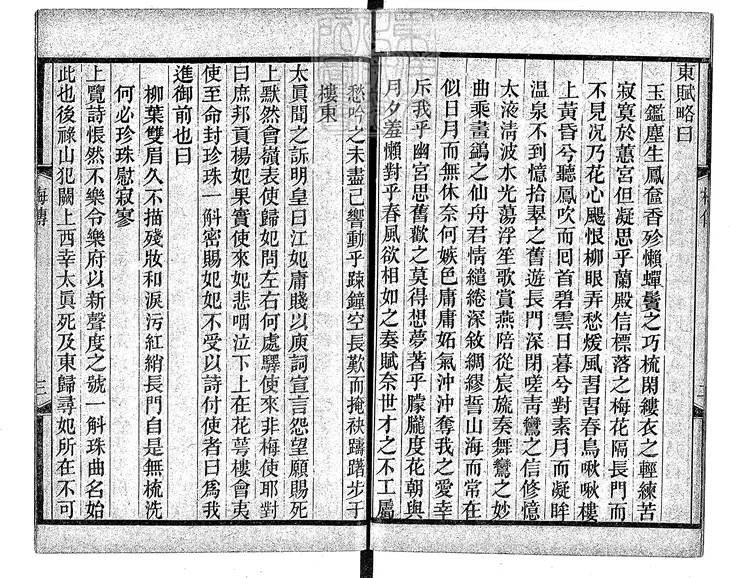 東賦略曰
玉鑑塵生鳳奩香殄懶蟬鬢之巧梳閑縷衣之輕練苦
寂寞於蕙宮但凝思乎蘭殿信標落之梅花隔長門而
不見况乃花心颺恨柳眼弄愁煖風習習春鳥啾啾樓
上黃昏兮聽鳳吹而回首碧雲日暮兮對素月而凝眸
溫泉不到憶拾翠之舊遊長門深閉嗟青鸞之信修憶
太液清波水光蕩浮笙歌賞燕陪從宸旒奏舞鸞之妙
曲乘畫鷁之仙舟君情繾綣深敘綢繆誓山海而常在
似日月而無休奈何嫉色庸庸妬氣沖沖奪我之愛幸
斥我乎幽宮思舊歡之莫得想夢著乎朦朧度花朝與
月夕羞懶對乎春風欲相如之奏賦奈世才之不工屬
愁吟之未盡已響動乎疎鐘空長歎而掩袂躊躇步于
樓東
太眞聞之訴明皇曰江妃庸賤以庾詞宣言怨望願賜死
上默然會嶺表使歸妃問左右何處驛使來非梅使耶對
曰庶邦貢楊妃果實使來妃悲咽泣下上在花萼樓會夷
使至命封珍珠一斛密賜妃妃不受以詩付使者曰爲我
進御前也曰
柳葉雙眉久不描殘妝和淚污紅綃長門自是無梳洗
何必珍珠慰寂寥
上覽詩悵然不樂令樂府以新聲度之號一斛珠曲名始
此也後祿山犯闕上西幸太眞死及東歸尋妃所在不可
梅傳
三